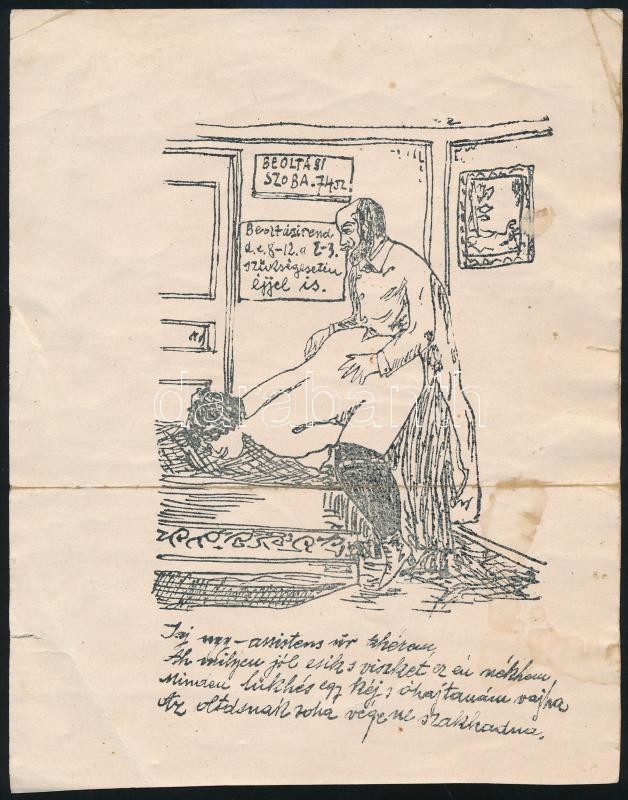 BEOLTÁSI
SZOBA. 74 sz.
Beoltásirend
d.e. 8-12. d 2-3.
szükségesetén
éjjel is.
darabanth
Jaj assistens úr khérem,
Ah milyen jól esik s viszket ez én nékhem
Minden lükhés egy kéj, s óhajtanám vajha
Az oltásnak soha vége ne szakhadna.